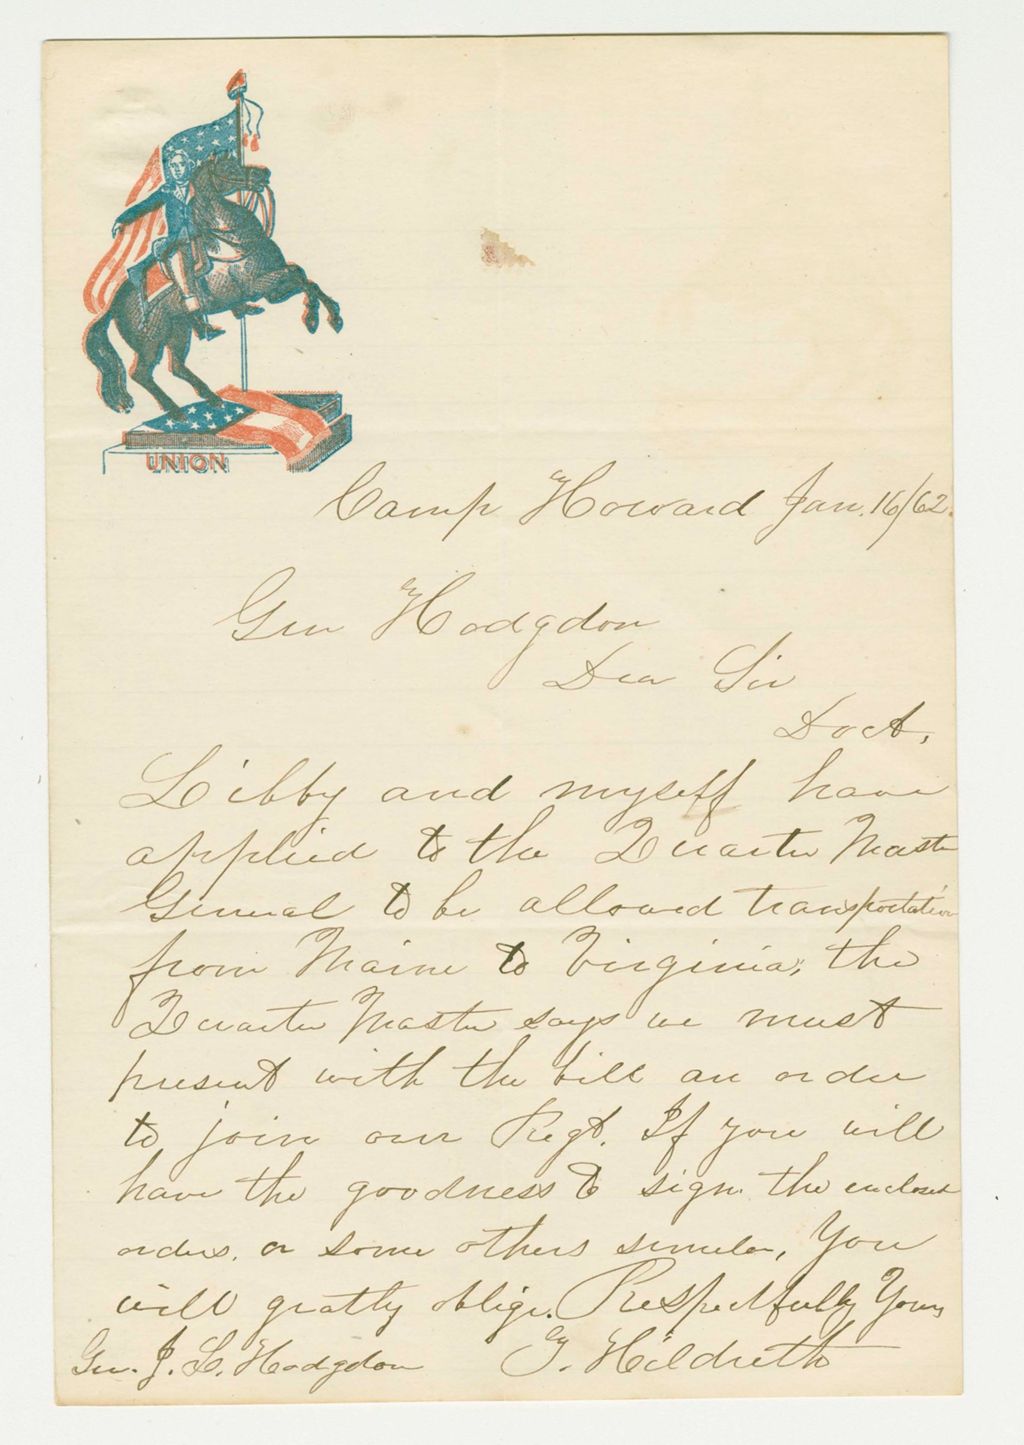 UNION
Camp Howard Jan. 16/62.
Gen Hodgdon
Dear Sir
Doct,
Libby and myself have
applied to the Quarter Master
General to be allowed transportation
from Maine to Virginia, the
Quarter Master says we must
present with the bill an order
to join our Regt. If you will
have the goodness to sign the enclosed
orders. or some others similar, You
will gratly oblige. Respectfully Yours
Gen. J. L. Hodgdon G. Hildreth